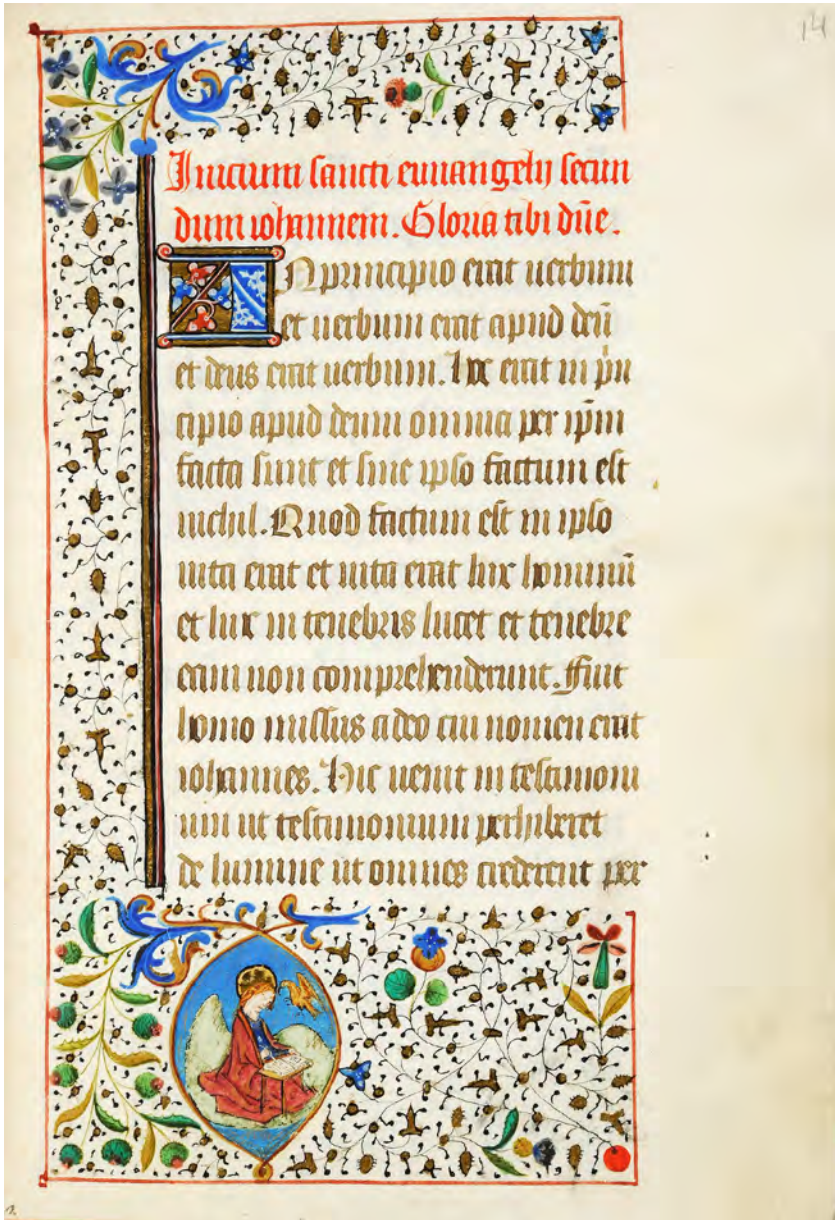 14
Inicium sancti euuangelij secun
dum iohannem. Gloria tibi dn̄e.
In principio erat uerbum
et uerbum erat apud deū
et deus erat uerbum. Hoc erat in pͥn
cipio apud deum omnia per ip̄m
facta sunt et sine ipso factum est
nichil. Quod factum est in ipso
uita erat et uita erat lux hominū
et lux in tenebris lucet et tenebre
eam non comprehenderunt. Fuit
homo missus a deo cui nomen erat
iohannes. Hic uenit in testimoni
um ut testimonium perhiberet
de lumine ut omnes crederent per